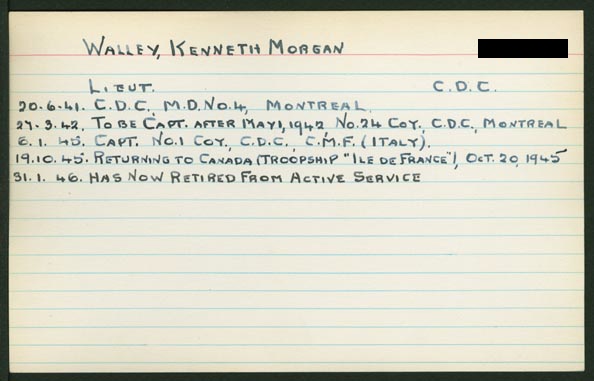 WALLEY, KENNETH MORGAN
LIEUT. C.D.C.
20.6.41. C.D.C. M.D. NO.4, MONTREAL.
27.3.42. TO BE CAPT. AFTER MAY 1, 1942 NO.24 COY., C.D.C., MONTREAL
6.1.45. CAPT. NO.1 COY., C.D.C., C.M.F. (ITALY).
19.10.45. RETURNING TO CANADA (TROOPSHIP "ILE DE FRANCE"), OCT. 20, 1945
31.1.46. HAS NOW RETIRED FROM ACTIVE SERVICE